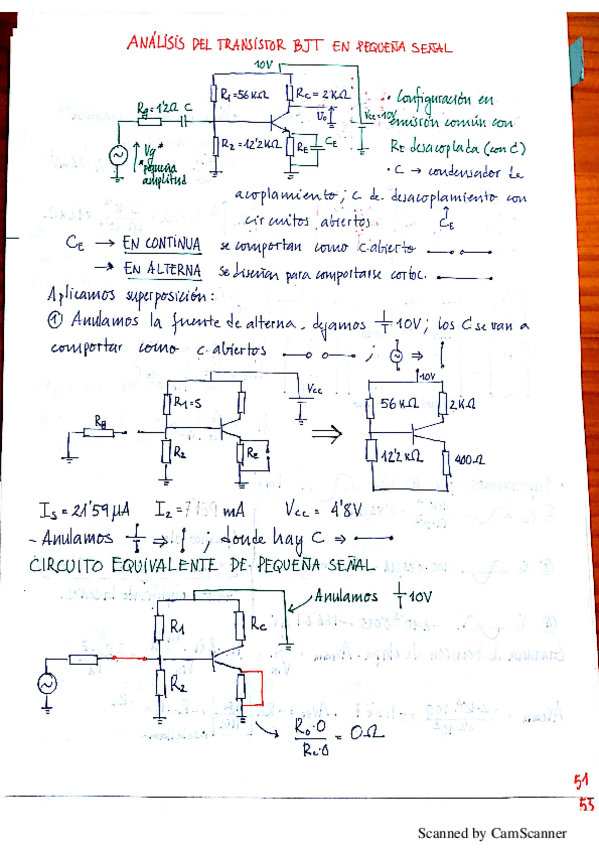 ANÁLISIS DEL TRANSISTOR BJT EN PEQUEÑA SEÑAL
10V
R1=56KΩ
RC=2KΩ
Rg=1'2Ω C
Vo
Vcc=10V
R2=12'2KΩ
RE
CE
Vg*
*pequeña
amplitud
· Configuración en
emisión común con
RE desacoplada (con C)
· C → condensador de
acoplamiento; C de desacoplamiento con
circuitos abiertos
CE
CE → EN CONTINUA se comportan como c.abierto
→ EN ALTERNA se diseñan para comportarse
Aplicamos superposición:
① Anulamos la fuente de alterna. dejamos 10V; los C se van a
comportar como c.abiertos ; ⇒
Vcc
Rg
R1=5
R2
RE
⇒
10V
56KΩ
2KΩ
12'2KΩ
400Ω
IS=21'59μA I2= mA Vcc= 4'8V
- Anulamos ⇒ ; donde hay C →
CIRCUITO EQUIVALENTE DE PEQUEÑA SEÑAL
Anulamos 10V
R1
RC
R2
= 0Ω
51
53
Scanned by CamScanner